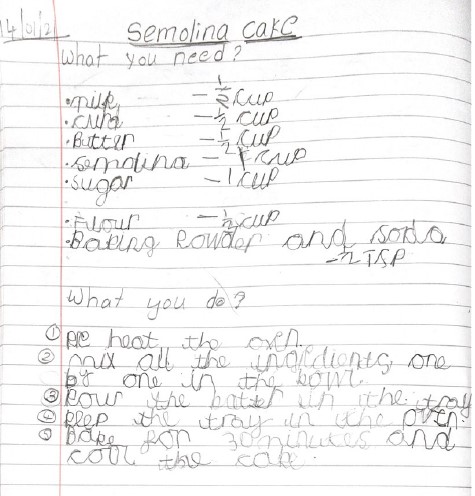 14/01/2
Semolina cake
What you need?
•milk – ½ cup
•curd – ½ cup
•Butter – ½ cup
•semolina – 1 cup
•sugar – 1 cup
•Flour – ½ cup
•Baking Powder and soda
– ½ TSP
What you do?
① Pre heat the oven.
② mix all the ingredients, one
by one in the bowl.
③ Pour the batter in the tray
④ keep the tray in the oven.
⑤ Bake for 30 minutes and
cool the cake.